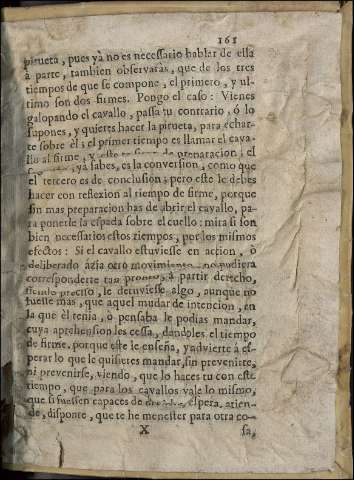 161
pirueta, pues yà no es necessario hablar de ella
à parte, tambien observaràs, que de los tres
tiempos de que se compone, el primero, y ul-
timo son dos firmes. Pongo el caso: Vienes
galopando el cavallo, passa tu contrario, ò lo
supones, y quieres hacer la pirueta, para echar-
te sobre èl; el primer tiempo es llamar el cava-
llo al firme, y este de preparacion; el
yà sabes, es la conversion, como que
el tercero es de conclusion; pero este le debes
hacer con reflexion al tiempo de firme, porque
sin mas preparacion has de abrir el cavallo, pa-
ra ponerle la espada sobre el cuello: mira si son
bien necessarios estos tiempos, por los mismos
efectos: Si el cavallo estuviesse en accion, ò
deliberado àzia otro movimiento, no pudiera
corresponderte tan prompto, à partir derecho,
siendo preciso, le detuviesse algo, aunque no
fuesse mas, que aquel mudar de intencion, en
la que èl tenia, ò pensaba le podias mandar,
cuya aprehension les cessa, dandoles el tiempo
de firme, porque este le enseña, y advierte à es-
perar lo que le quisieres mandar, sin prevenirte,
ni prevenirse, viendo, que lo haces tu con este
tiempo, que para los cavallos vale lo mismo,
que si fuessen capaces de espera, atien-
de, disponte, que te he menester para otra co-
X sa,